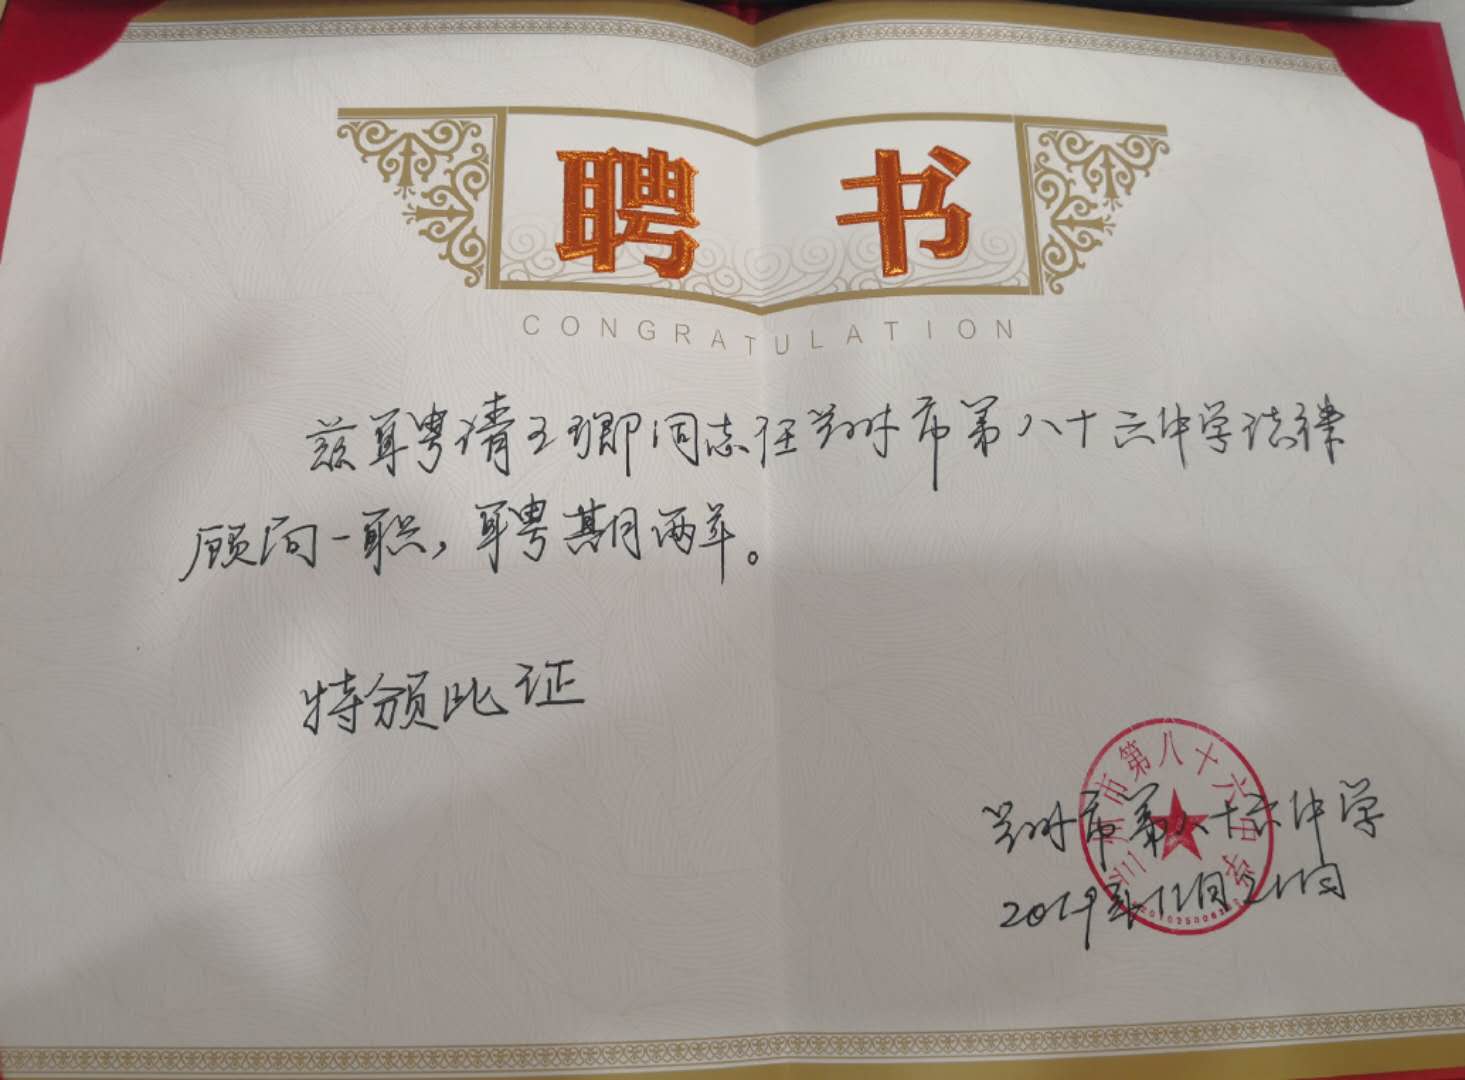 聘书
CONGRATULATION
兹聘请王卿同志任兰州市第八十六中学法律
顾问一职，聘期两年。
特颁此证
兰州市第八十六中学
2019年
兰州市第八十六中学